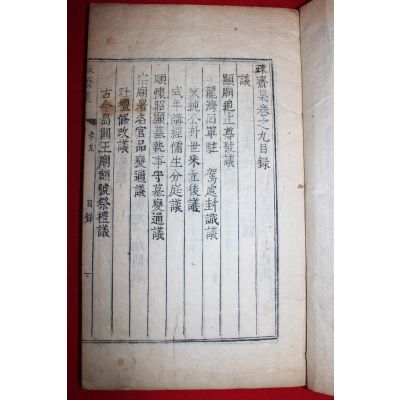 疎齋集卷之九目錄
議
顯廟追上尊號議
龍灣回軍駐 駕處封識議
文純公朴世采立後議
式年講經儒生分庭議
順懷昭顯墓執事守墓變通議
宗廟署名官品變通議
社壇修改議
古今島關王廟額號祭禮議
疎齋集 卷九 目錄 一